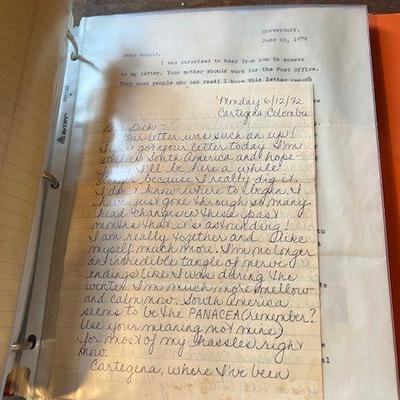 Shrewsbury.
June 29, 1972
Dear Bonnie,
I was surprised to hear from you in answer
to my letter. Your mother should work for the Post Office.
They need people who can read! I hope this letter
Monday 6/12/72
Cartegena, Colombia
Dick-
letter was such an up!
I got your letter today. I'm
still in South America and hope
I'll be here a while
because I really dig it.
I don't know where to begin. I
have just gone through so many
head changes in these past
months that it's astounding!
I am really together and I like
myself much more. I'm no longer
an incredible tangle of nerve
endings like I was during the
winter. I'm much more mellow
and calm now. South America
seems to be the PANACEA (remember?
Use your meaning not mine)
for most of my hassles right
now.
Cartegena, where I've been